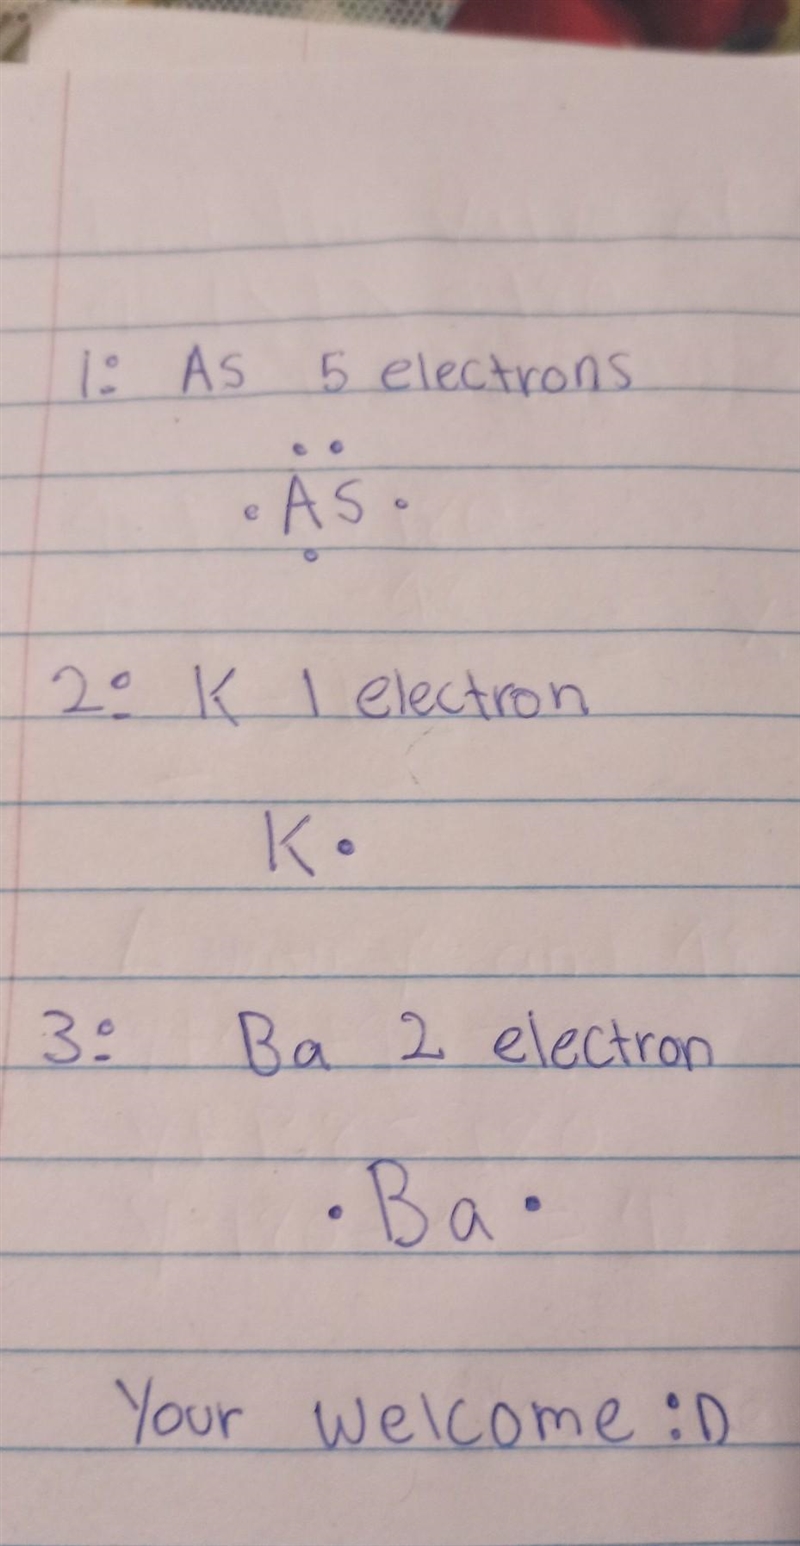 1: As 5 electrons
As
2: K 1 electron
K
3: Ba 2 electron
Ba
Your welcome :D